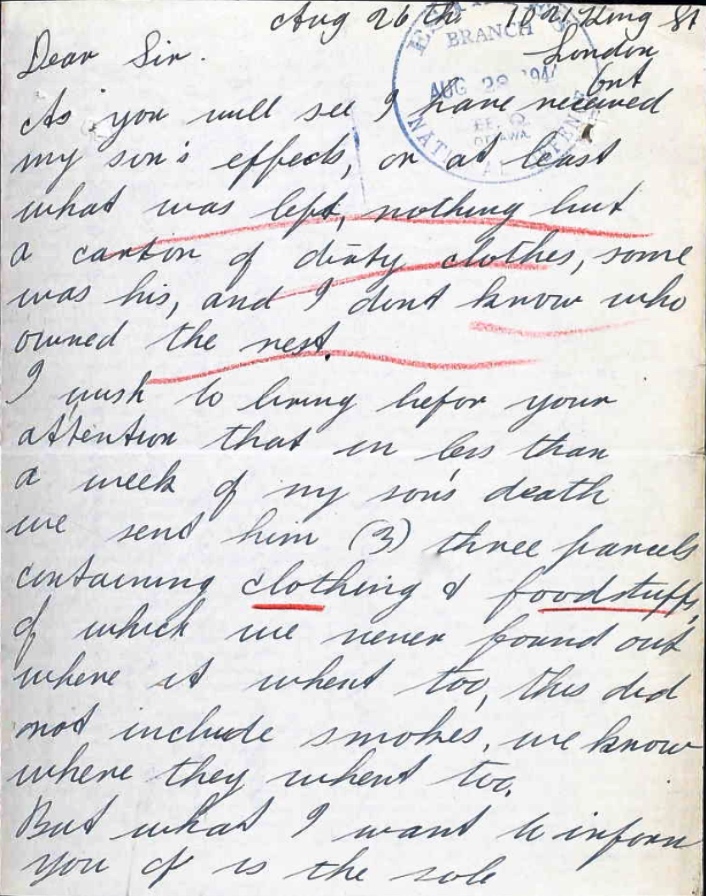 Aug 26th 1021 King St
London
Ont
Dear Sir.
BRANCH
AUG 28 194
OTTAWA
As you will see I have received
my son's effects, or at least
what was left, nothing but
a carton of dirty clothes, some
was his, and I dont know who
owned the rest.
I wish to bring befor your
attention that in less than
a week of my son's death
we send him (3) three parcels
containing clothing & foodstuffs,
of which we never found out
where it whent too, this did
not include smokes, we know
where they whent too.
But what I want to inform
you of is the sole